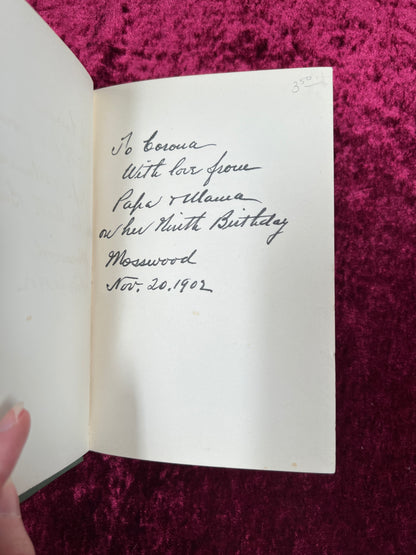 3.50
To Corona
With love from
Papa & Mama
on her Ninth Birthday
Mosswood
Nov. 20. 1902